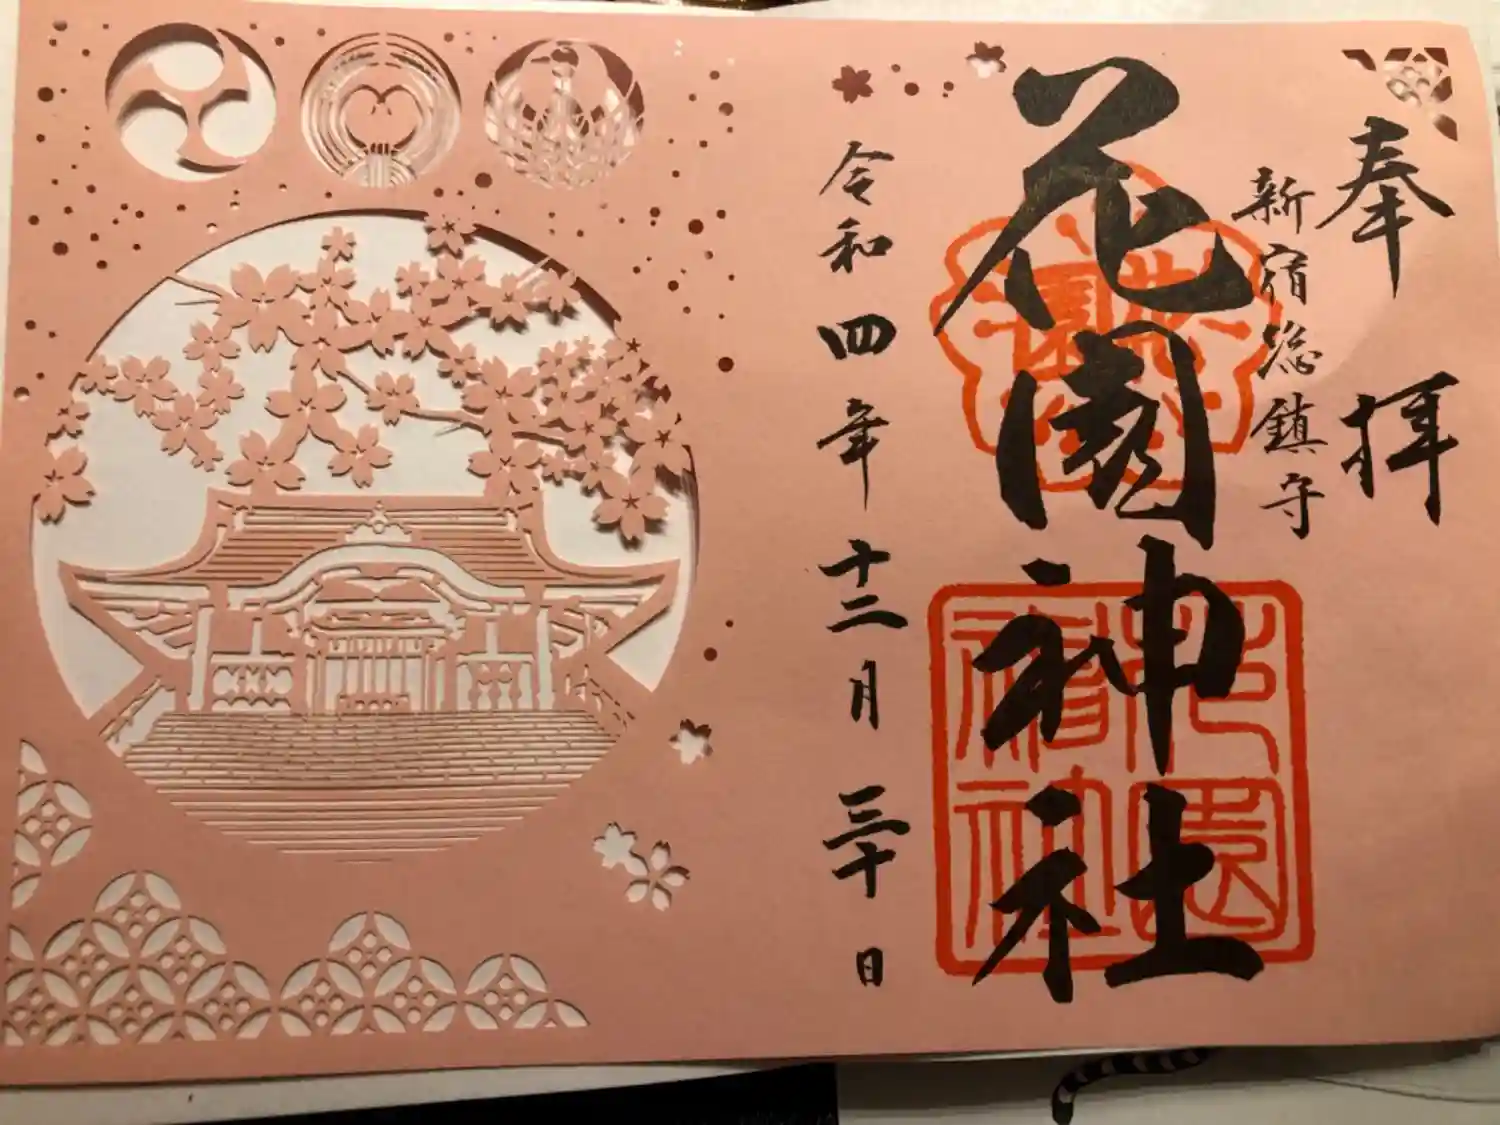 奉拝
新宿総鎮守
花園神社
令和四年十二月三十日
花園
花園神社